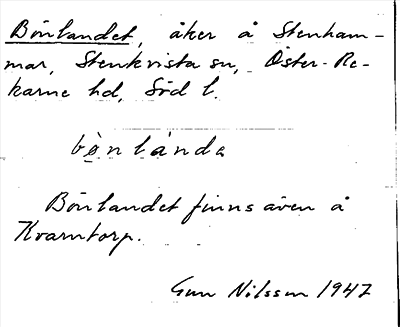 Bönlandet, åker å Stenham-
mar, Stenkvista sn, Öster-Re-
karne hd, Söd l.
bø̀nlánda
Bönlandet finns även å
Kvarntorp.
Gun Nilsson 1947